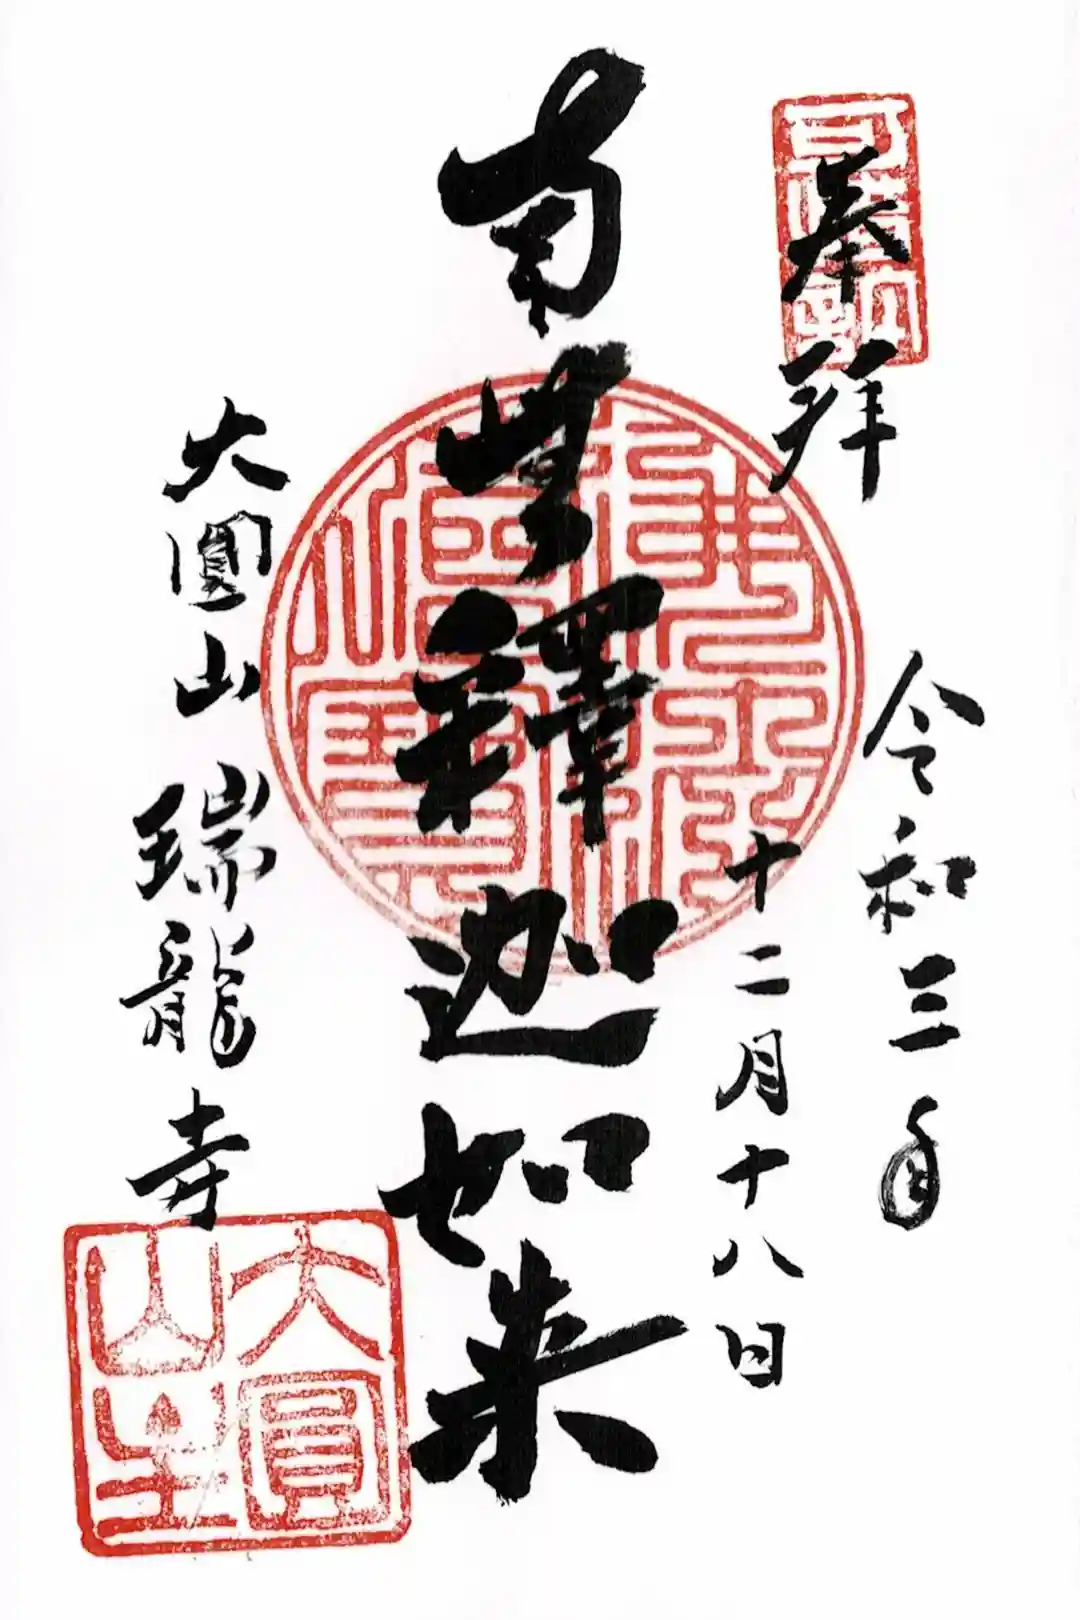 奉拝
令和三年
十二月十八日
南無釋迦如来
大圓山 瑞龍寺
大圓
山主